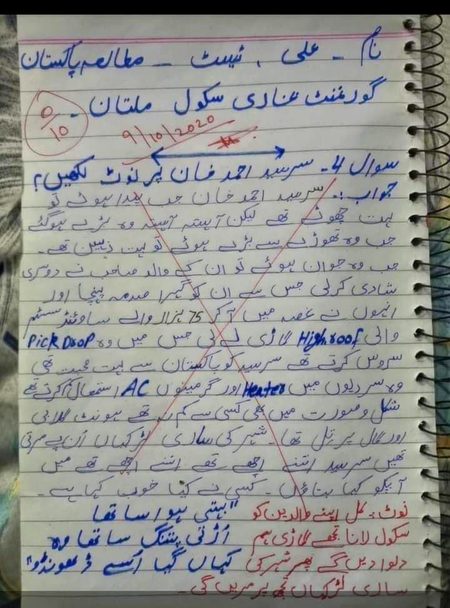 نام ۔ علی ، ٹیسٹ ۔ مطالعہ پاکستان
گورنمنٹ غازی سکول ملتان ۔
0/10
9/10/2020
سوال 4۔ سرسید احمد خان پر نوٹ لکھیں؟
جواب :۔ سرسید احمد خان جب پیدا ہوئے تو
بہت چھوٹے تھے لیکن آہستہ آہستہ وہ بڑے ہوگئے
جب وہ تھوڑے سے بڑے ہوئے تو بہت ذہین تھے۔
جب وہ جوان ہوئے تو ان کے والد صاحب نے دوسری
شادی کرلی جس سے ان کو گہرا صدمہ پہنچا اور
انہوں نے غصہ میں آکر 75 ہزار والے ساؤنڈ سسٹم
والی Highroof گاڑی لے لی جس میں وہ Pick Drop
سروس کرتے تھے سرسید کو پاکستان سے بہت محبت تھی
وہ سردیوں میں Heater اور گرمیوں AC استعمال کرتے تھے
شکل و صورت میں بھی کسی سے کم نہ تھے ہونٹ گلابی
اور گال پر تل تھا۔ شہر کی ساری لڑکیاں ان پے مرتی
تھیں سرسید اتنے اچھے تھے اتنے اچھے تھے میں
آپکو کیا بتاؤں ۔ کسی نے کیا خوب کہا ہے۔
"بہتی ہوا سا تھا
اڑتی پتنگ سا تھا وہ
کہاں گیا اسے ڈھونڈو"
نوٹ : کل اپنے والدین کو
سکول لانا تجھے گاڑی ہم
دلوا دیں گے پھر شہر کی
ساری لڑکیاں تجھ پر مریں گی۔